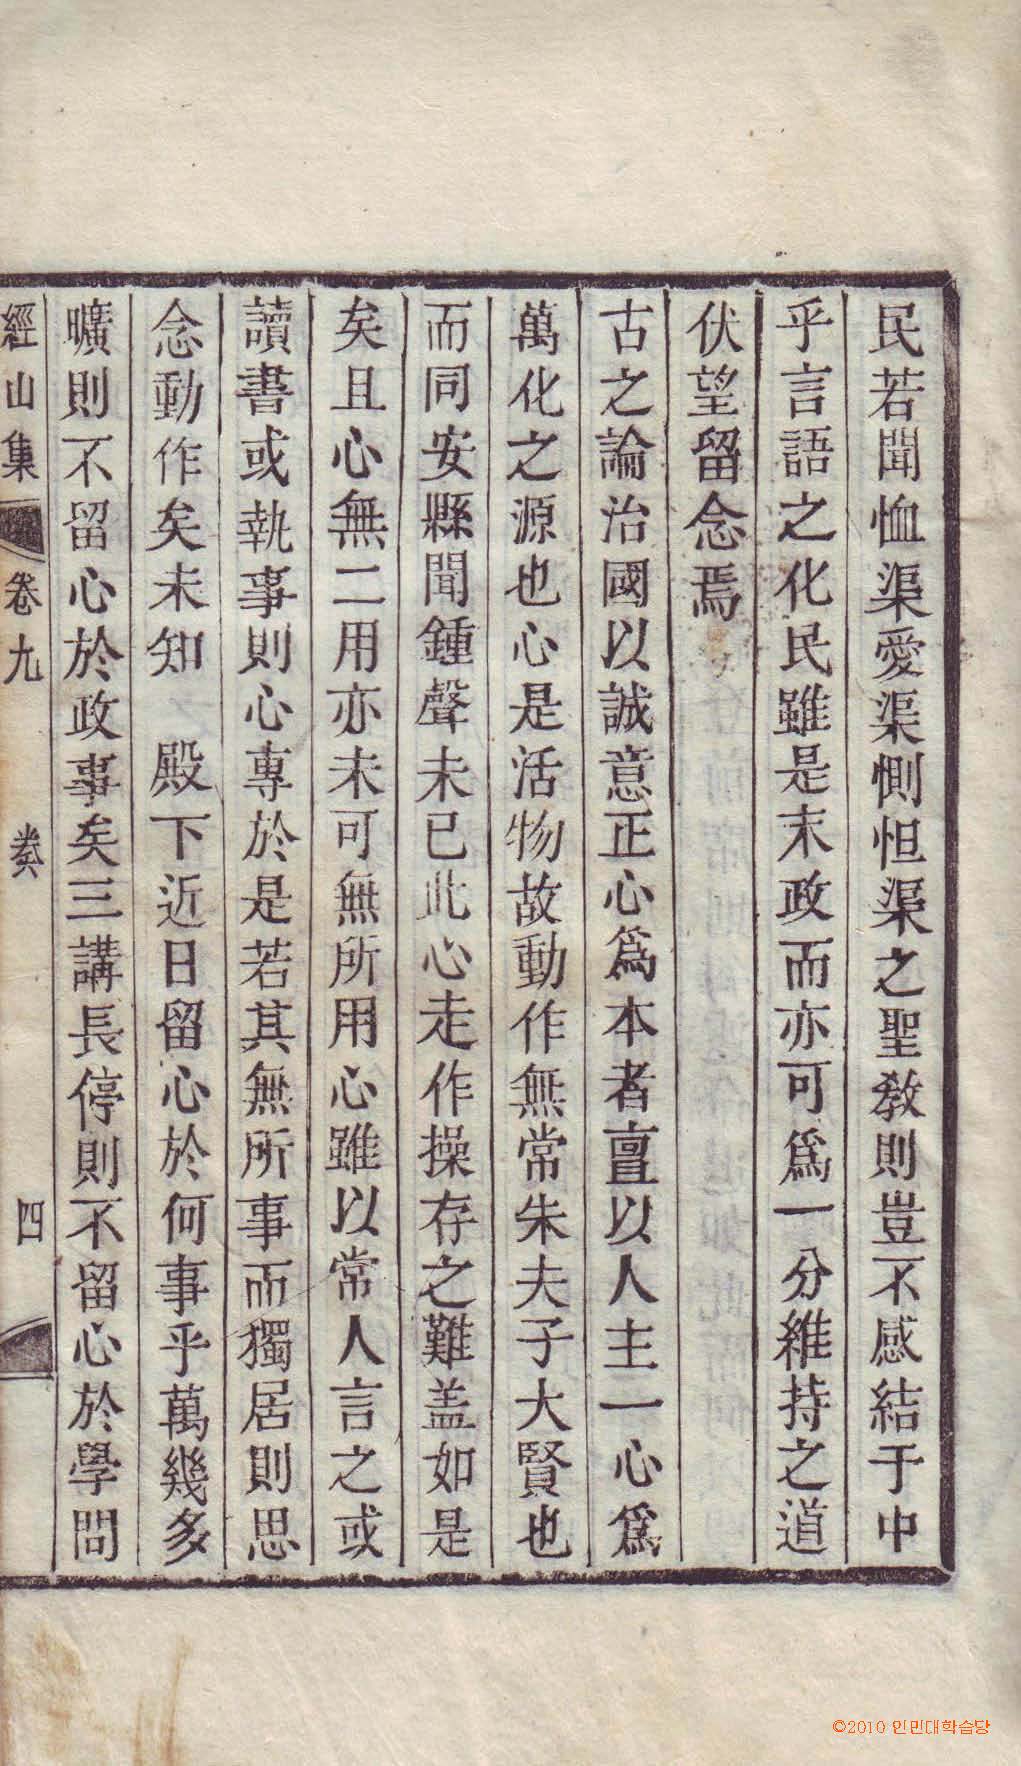 民若聞恤渠愛渠惻怛渠之聖敎則豈不感結于中
乎言語之化民雖是末政而亦可爲一分維持之道
伏望留念焉
古之論治國以誠意正心爲本者亶以人主一心爲
萬化之源也心是活物故動作無常朱夫子大賢也
而同安縣聞鍾聲未已此心走作操存之難盖如是
矣且心無二用亦未可無所用心雖以常人言之或
讀書或執事則心專於是若其無所事而獨居則思
念動作矣未知 殿下近日留心於何事乎萬幾多
曠則不留心於政事矣三講長停則不留心於學問
經山集 卷九 四
©2010 인민대학습당